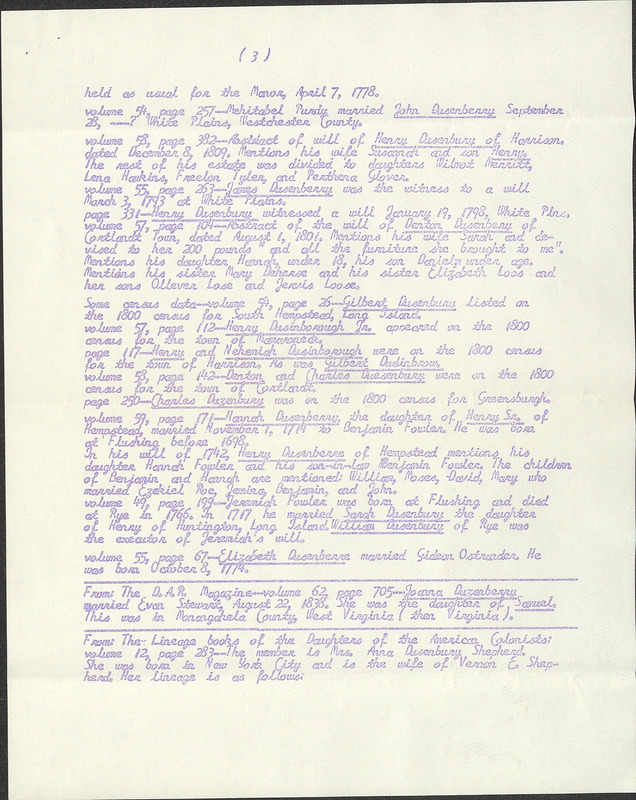 (3)
held as usual for the Manor, April 7, 1778.
volume 54, page 257--Mehitabel Purdy married John Dusenberry September
28, ---? White Plains, Westchester County.
volume 58, page 332--Abstract of will of Henry Dusenbury of Harrison.
dated December 8, 1809. Mentions his wife Susannah and son Henry.
The rest of his estate was divided to daughters Wilmot Merritt,
Lena Hawkins, Freelon Tyler, and Perthena Glover.
volume 55, page 263--James Dusenberry was the witness to a will
March 3, 1793 at White Plains.
page 331--Henry Dusenbury witnessed a will January 19, 1798, White Plns.
volume 57, page 104--Abstract of the will of Denton Dusenbery of
Cortlandt Town, dated August 1, 1801. Mentions his wife Sarah and de-
vised to her 200 pounds "and all the furniture she brought to me".
Mentions his daughter Hannah, under 18, his son Daniel, under age.
Mentions his sister Mary Deherse and his sister Elizabeth Loos and
her sons Ollever Lose and Jervis Loose.
Some census data--volume 54, page 26--Gilbert Dusenbury listed on
the 1800 census for South Hempstead, Long Island.
volume 57, page 112--Henry Dusinborough Jr. appeared on the 1800
census for the town of Mamaroneck.
page 117--Henry and Nehemiah Dusinborough were on the 1800 census
for the town of Harrison. As was Gilbert Dusinbrow.
volume 59, page 142--Denton and Charles Duesenbury were on the 1800
census for the town of Cortlandt.
page 250--Charles Duzenbury was on the 1800 census for Greensburgh.
volume 59, page 171--Hannah Dusenberry, the daughter of Henry Sr. of
Hempstead, married November 1, 1714 to Benjamin Fowler. He was born
at Flushing before 1698.
In his will of 1742, Henry Dusenberre of Hempstead mentions his
daughter Hannah Fowler and his son-in-law Benjamin Fowler. The children
of Benjamin and Hannah are mentioned: William, Moses, David, Mary who
married Ezekiel Roe, Jemina, Benjamin, and John.
volume 49, page 199--Jeremiah Fowler was born at Flushing and died
at Rye in 1766. In 1717 he married Sarah Dusenbury the daughter
of Henry of Huntington, Long Island. William Dusenbury of Rye was
the executor of Jeremiah's will.
volume 55, page 67--Elizabeth Dusenberre married Gideon Ostrander. He
was born October 8, 1774.
From: The D.A.R. Magazine--volume 62, page 705--Joanna Duzenberry
married Evan Stewart, August 22, 1838. She was the daughter of Samuel.
This was in Monangahela County, West Virginia ( then Virginia ).
From: The Lineage books of the Daughters of the American Colonists:
volume 12, page 283--The member is Mrs. Anna Dusenbury Shepherd.
She was born in New York City and is the wife of Vernon E. Shep-
herd. Her lineage is as follows: